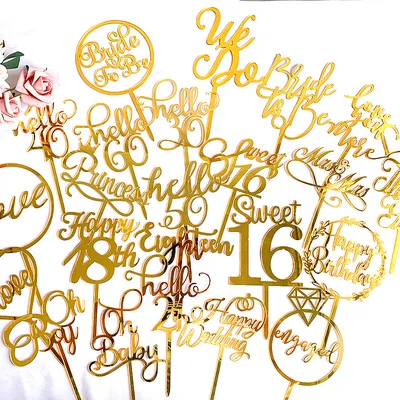 Bride
To Be
We
Do
Bride
to Be
Love
hello
40
hello
60
hello
30
Sweet
16
Mr &
Mrs
Love
Princess
hello
50
Happy
18th
Eighteen
Sweet
16
Happy
Birthday
Love
Oh
Boy
Oh
Baby
hello
Happy
Wedding
engaged